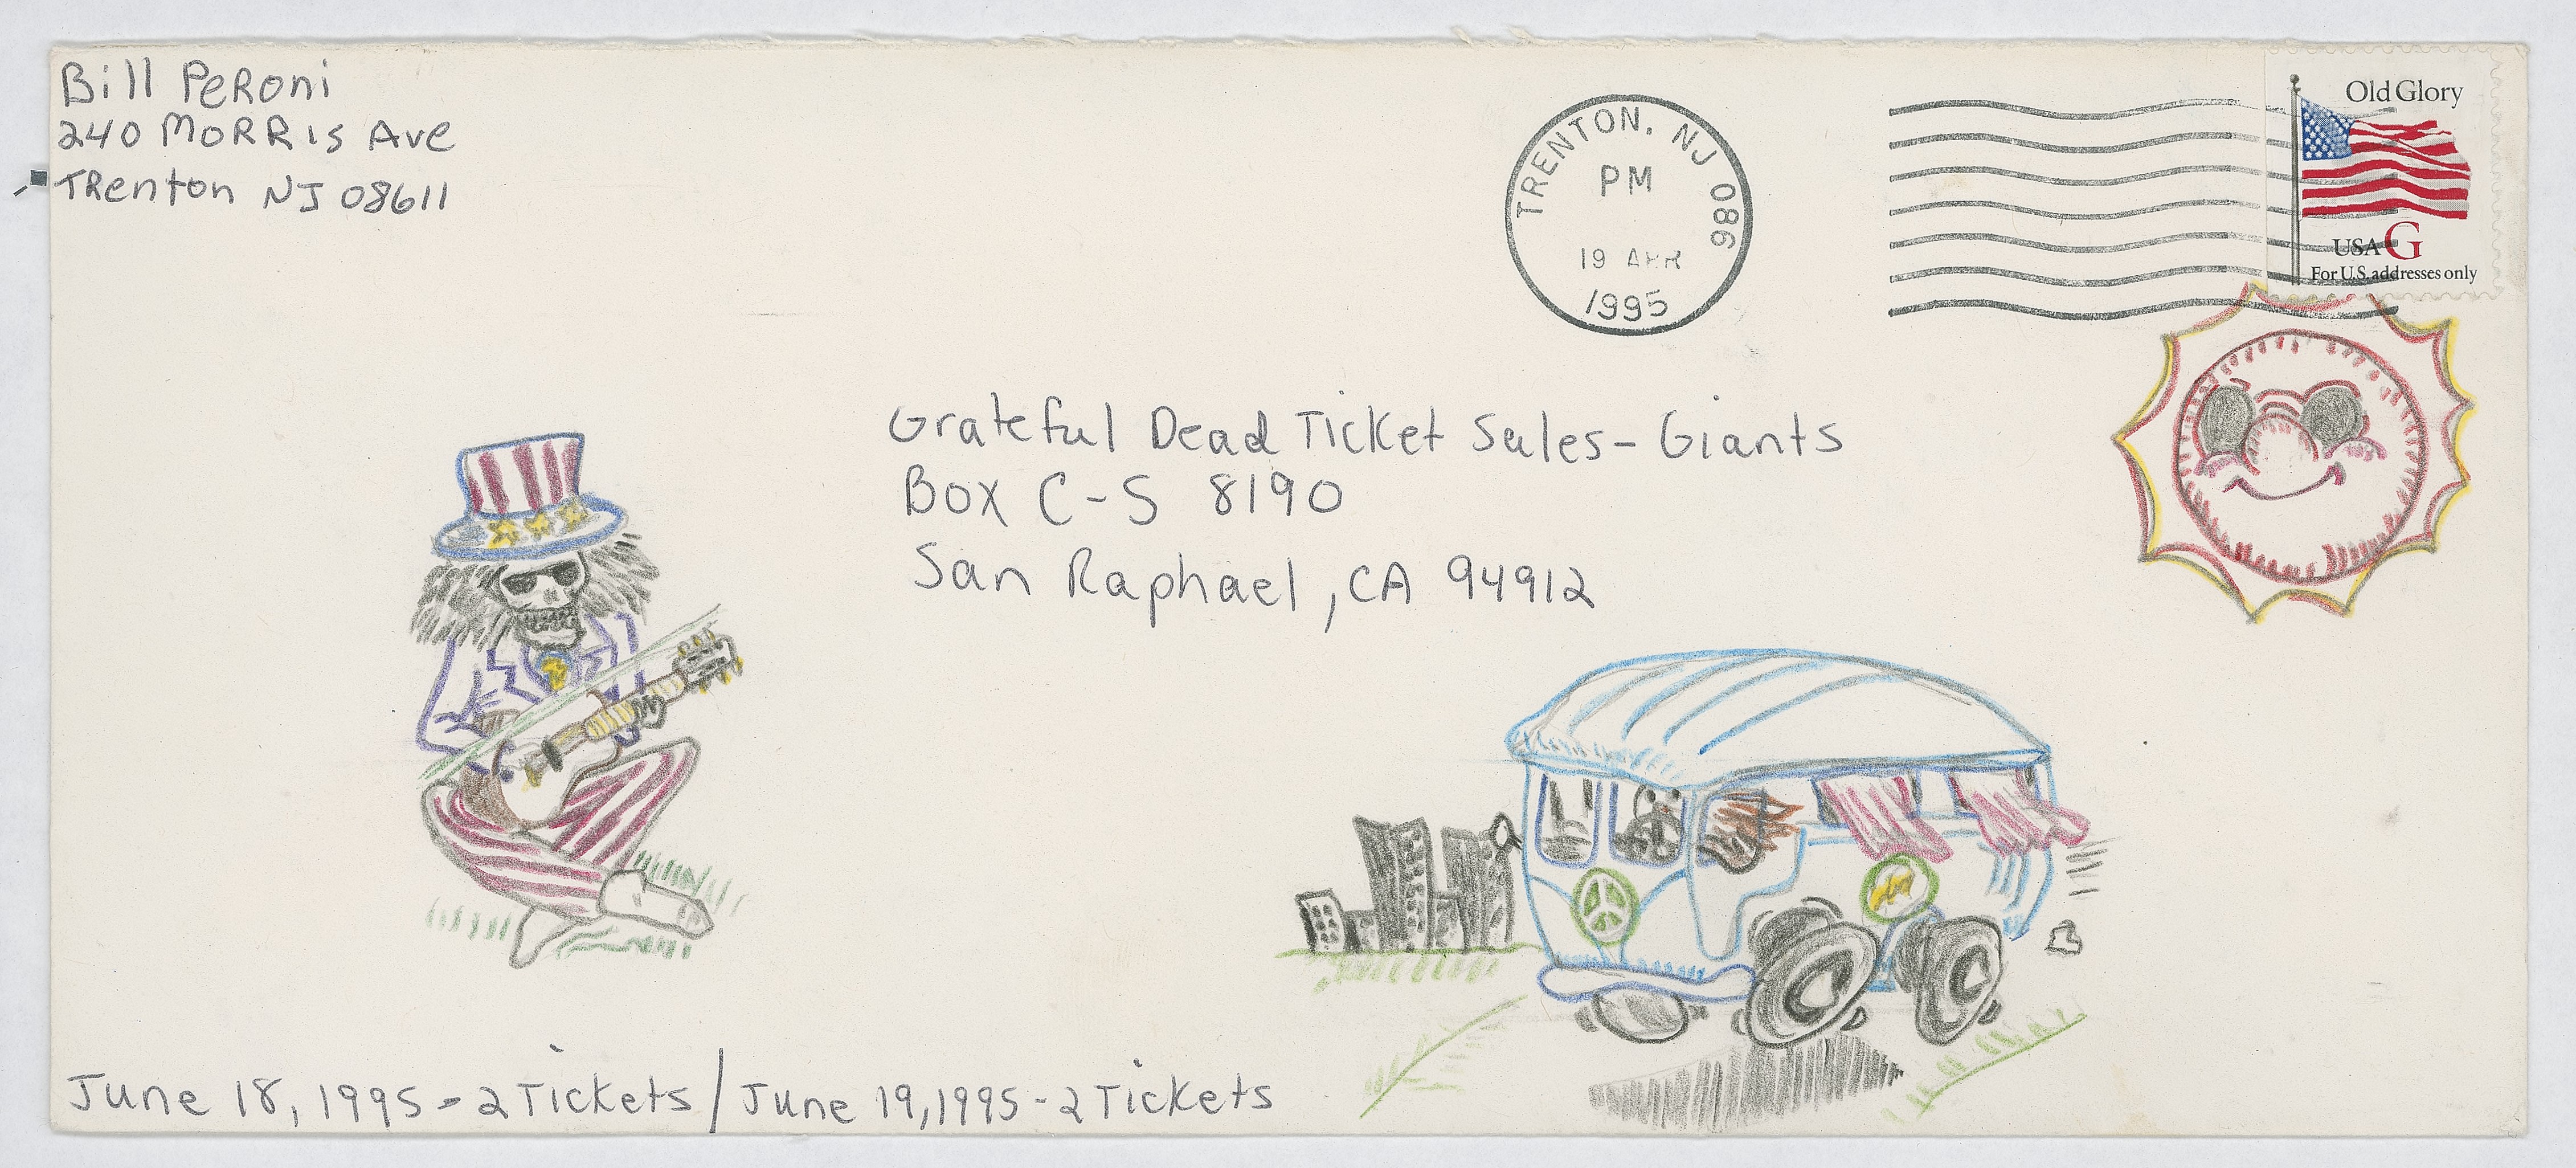 Bill Peroni
240 Morris Ave
Trenton NJ 08611
TRENTON, NJ 086
PM
19 APR
1995
Old Glory
USA G
For U.S. addresses only
Grateful Dead Ticket Sales - Giants
Box C-S 8190
San Raphael, CA 94912
June 18, 1995 - 2 Tickets / June 19, 1995 - 2 Tickets